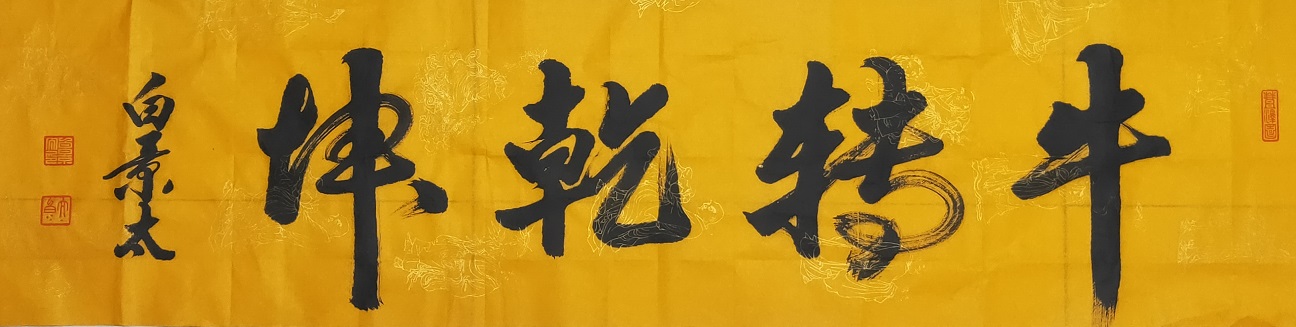 牛转乾坤
白景太